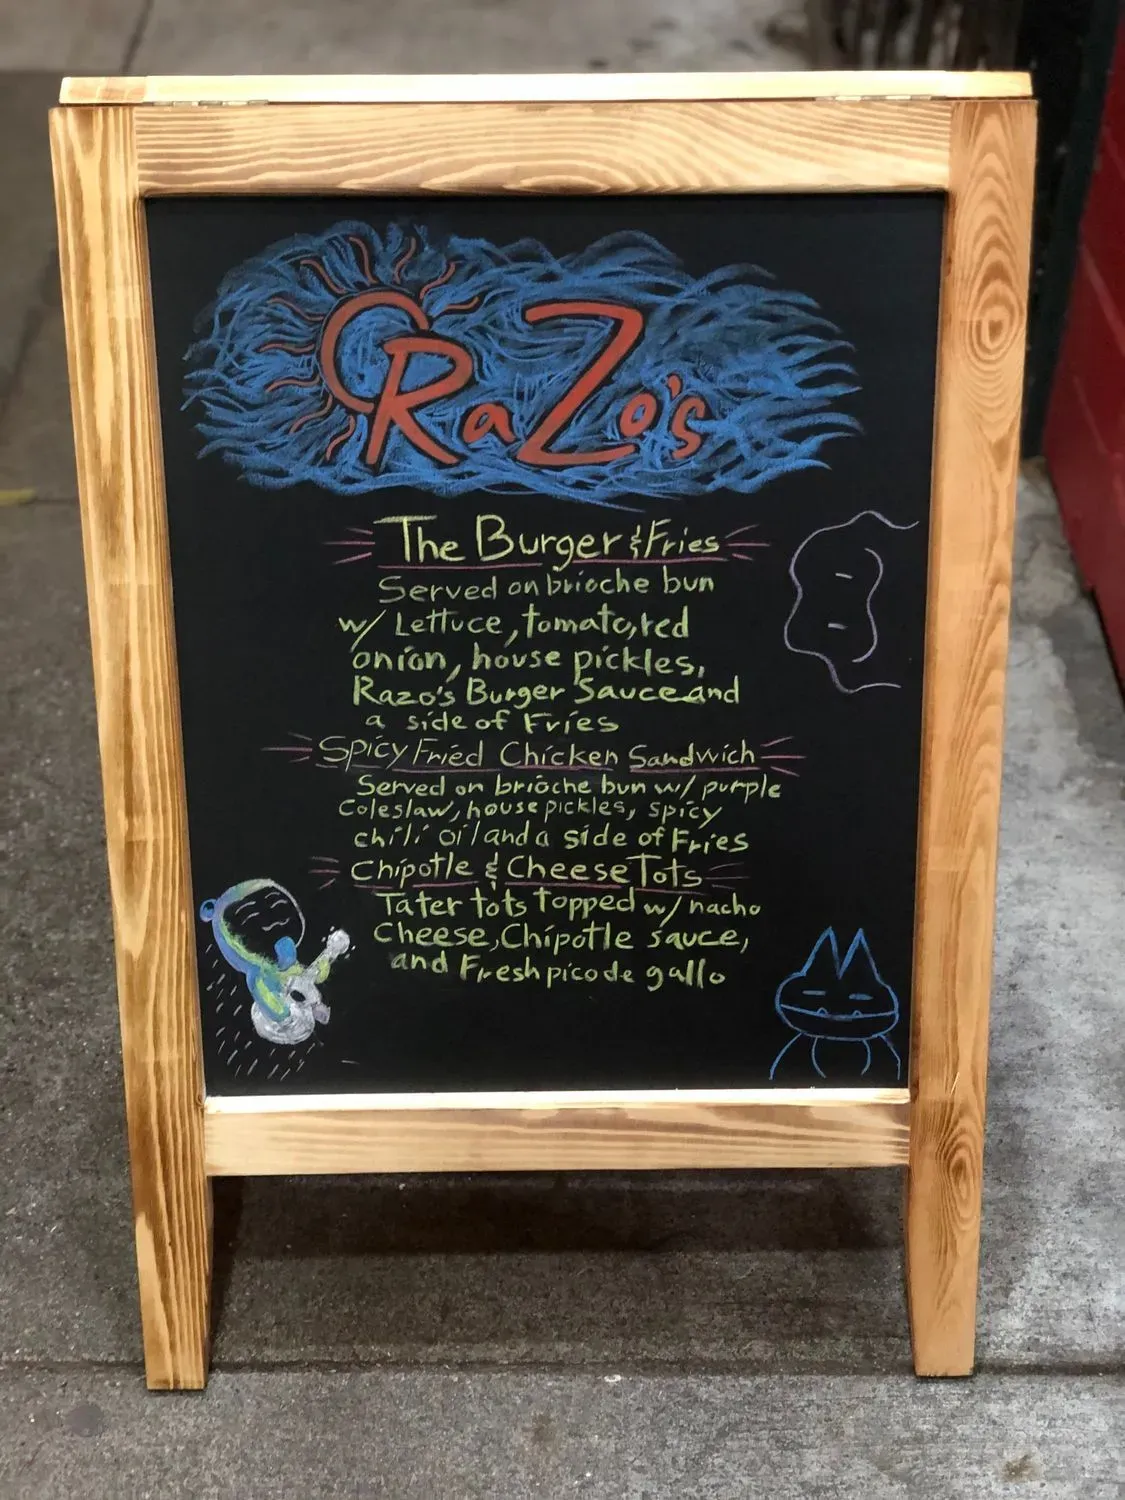 RaZo's
The Burger & Fries
Served on brioche bun
w/ Lettuce, tomato, red
onion, house pickles,
Razo's Burger Sauce and
a side of Fries
Spicy Fried Chicken Sandwich
Served on brioche bun w/ purple
Coleslaw, house pickles, spicy
chili oil and a side of Fries
Chipotle & Cheese Tots
Tater tots topped w/ nacho
Cheese, Chipotle sauce,
and Fresh pico de gallo